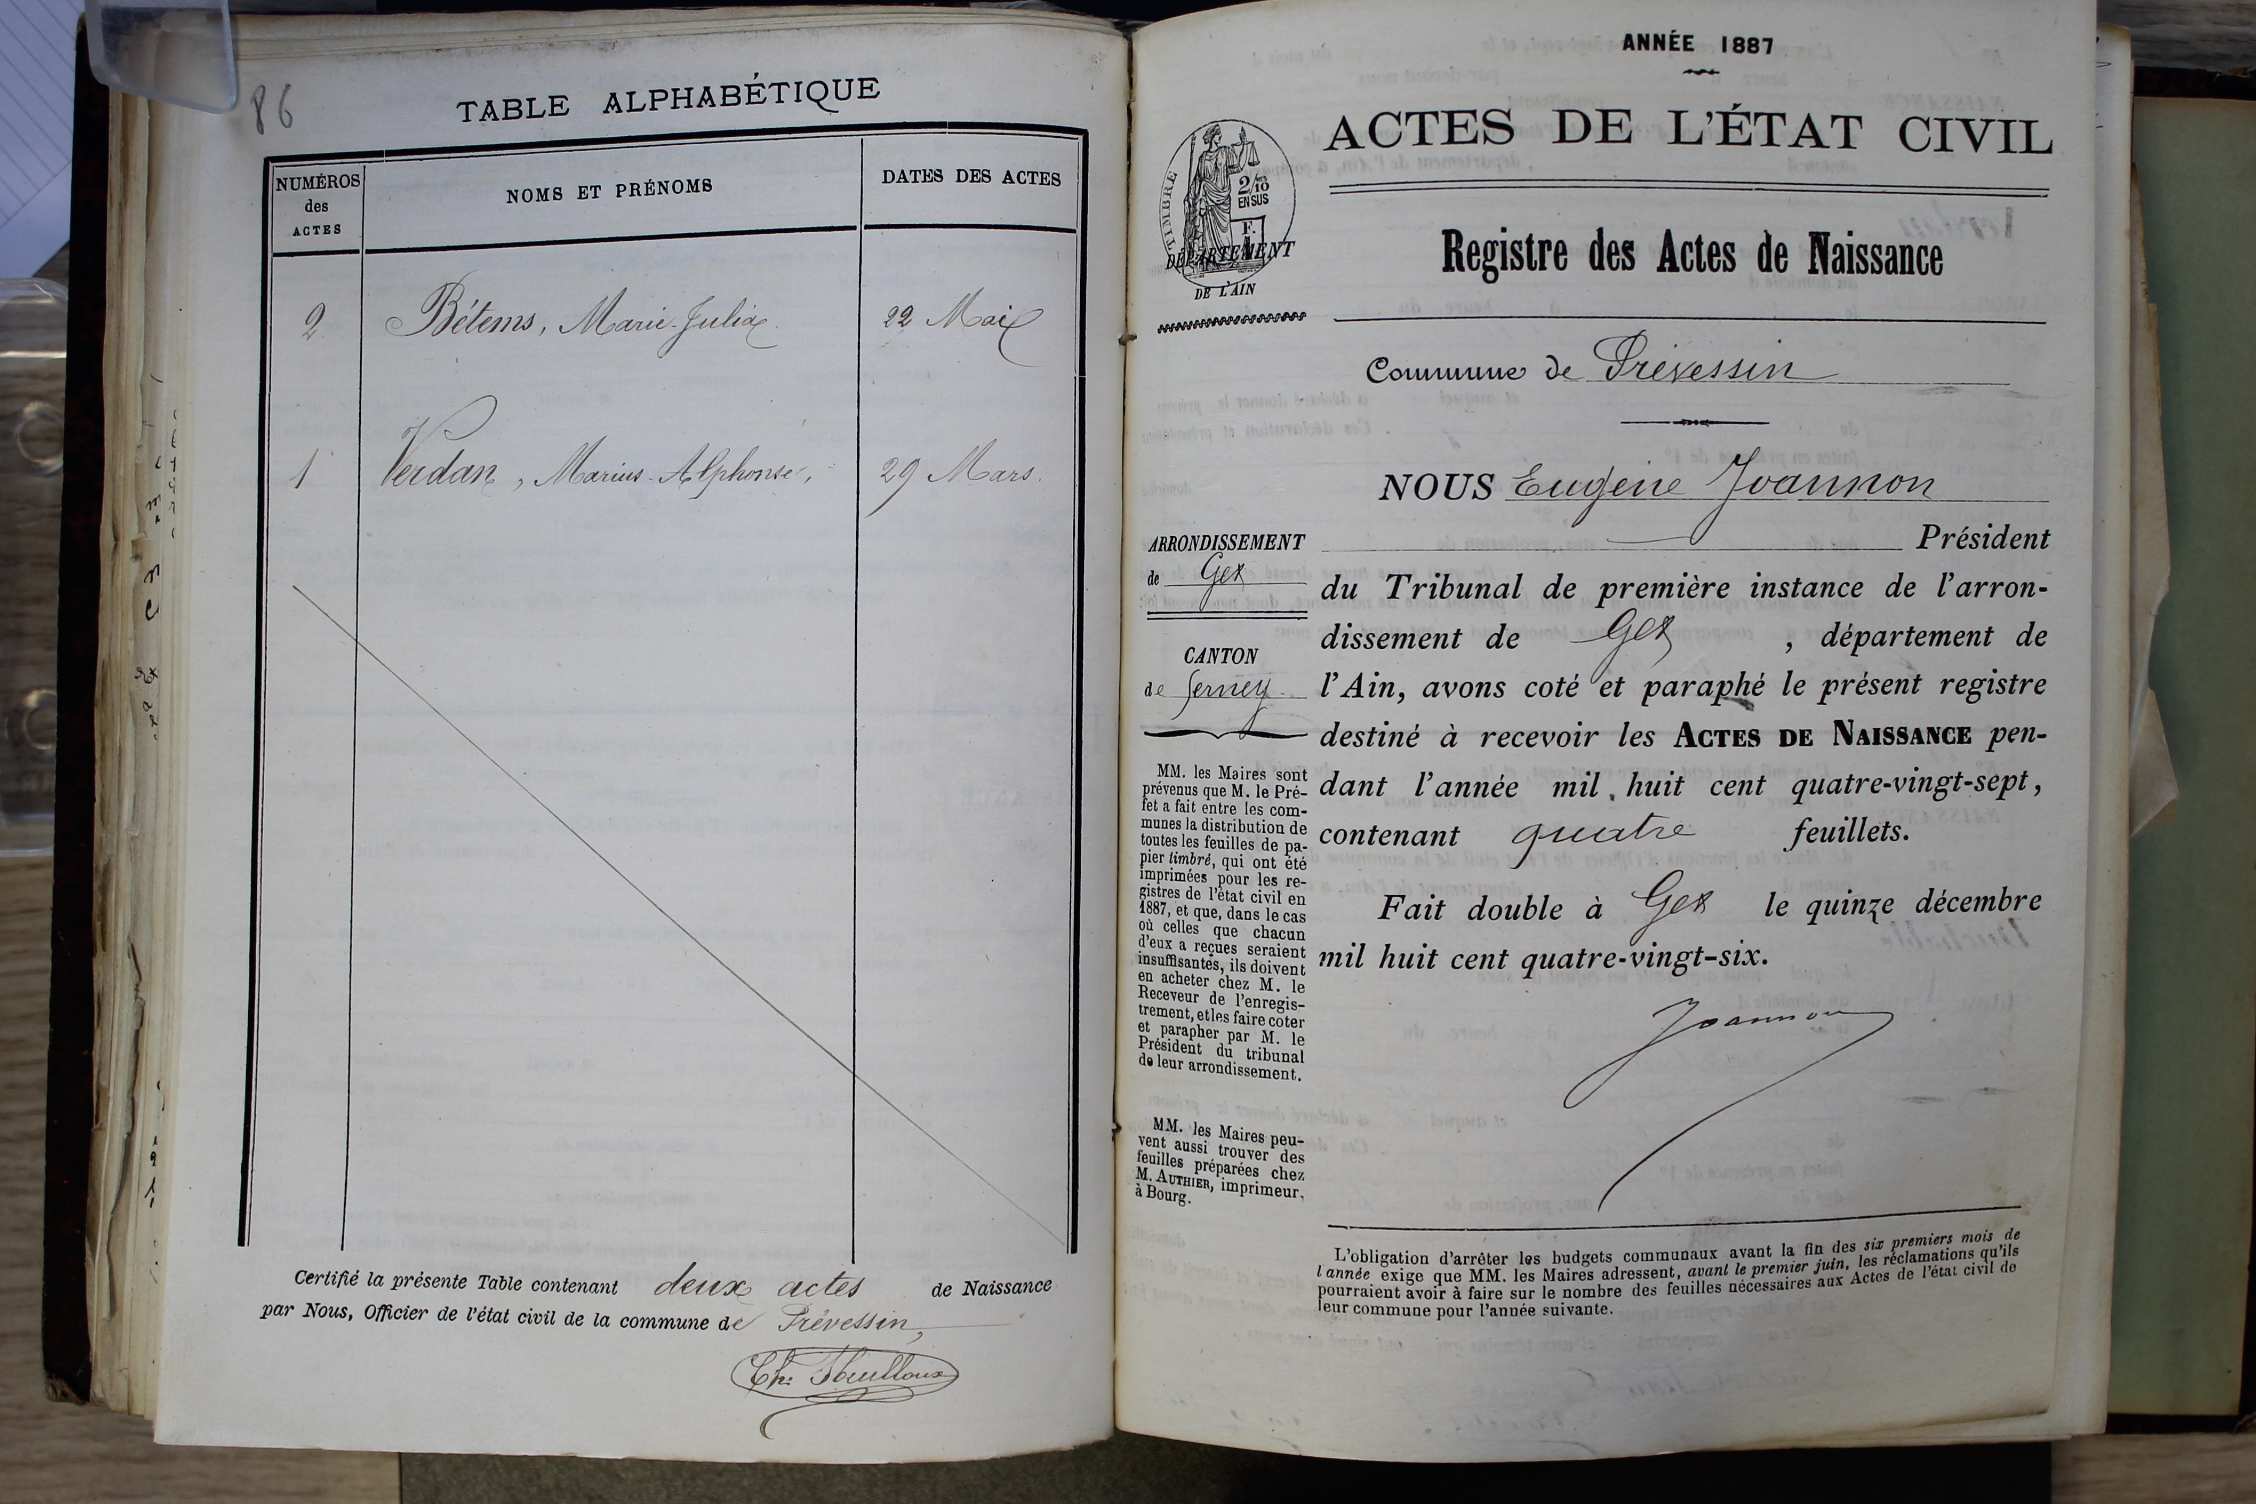 86
TABLE ALPHABÉTIQUE
NUMÉROS
des
ACTES
NOMS ET PRÉNOMS
DATES DES ACTES
2 Bétems, Marie-Julia 22 Mai
1 Verdan, Marius-Alphonse, 29 Mars.
Certifié la présente Table contenant deux actes de Naissance
par Nous, Officier de l'état civil de la commune de Prévessin,
ANNÉE 1887
ACTES DE L'ÉTAT CIVIL
TIMBRE
2/10
EN SUS
F.
DÉPARTEMENT
DE L'AIN
Registre des Actes de Naissance
Commune de Prévessin
NOUS Eugène Joannon
Président
du Tribunal de première instance de l'arron-
dissement de Gex, département de
l'Ain, avons coté et paraphé le présent registre
destiné à recevoir les ACTES DE NAISSANCE pen-
dant l'année mil huit cent quatre-vingt-sept,
contenant quatre feuillets.
Fait double à Gex le quinze décembre
mil huit cent quatre-vingt-six.
Joannon
ARRONDISSEMENT
de Gex
CANTON
de Ferney
MM. les Maires sont
prévenus que M. le Pré-
fet a fait entre les com-
munes la distribution de
toutes les feuilles de pa-
pier timbré, qui ont été
imprimées pour les re-
gistres de l'état civil en
1887, et que, dans le cas
où celles que chacun
d'eux a reçues seraient
insuffisantes, ils doivent
en acheter chez M. le
Receveur de l'enregis-
trement, et les faire coter
et parapher par M. le
Président du tribunal
de leur arrondissement.
MM. les Maires peu-
vent aussi trouver des
feuilles préparées chez
M. AUTHIER, imprimeur,
à Bourg.
L'obligation d'arrêter les budgets communaux avant la fin des six premiers mois de
l'année exige que MM. les Maires adressent, avant le premier juin, les réclamations qu'ils
pourraient avoir à faire sur le nombre des feuilles nécessaires aux Actes de l'état civil de
leur commune pour l'année suivante.